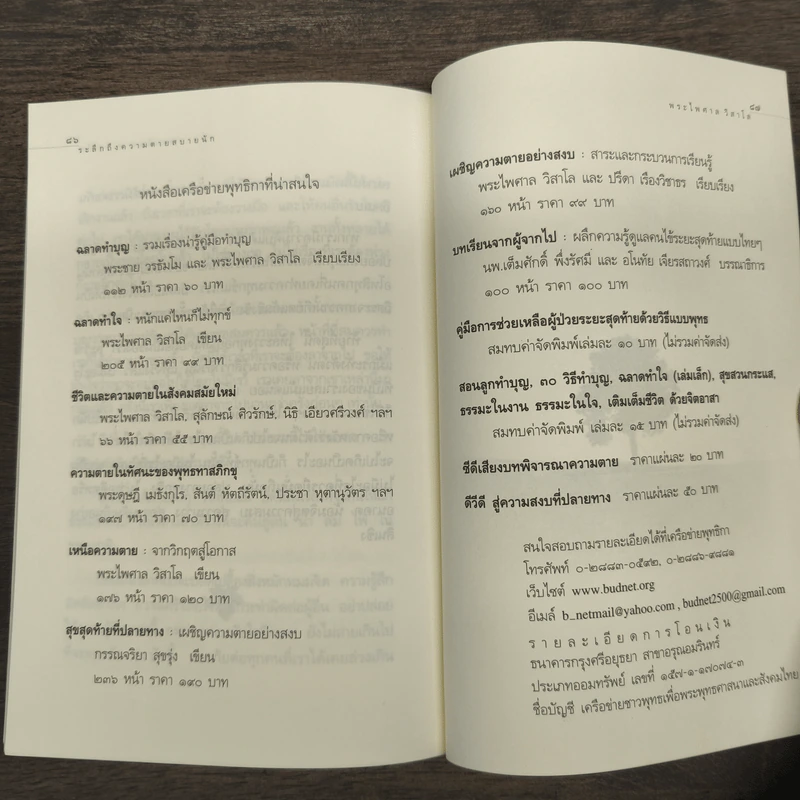 ๘๖
ระลึกถึงความตายสบายนัก
หนังสือเครือข่ายพุทธิกาที่น่าสนใจ
ฉลาดทำบุญ : รวมเรื่องน่ารู้คู่มือทำบุญ
พระชาย วรธัมโม และ พระไพศาล วิสาโล เรียบเรียง
๑๑๒ หน้า ราคา ๖๐ บาท
ฉลาดทำใจ : หนักแค่ไหนก็ไม่ทุกข์
พระไพศาล วิสาโล เขียน
๒๐๕ หน้า ราคา ๙๙ บาท
ชีวิตและความตายในสังคมสมัยใหม่
พระไพศาล วิสาโล, สุลักษณ์ ศิวรักษ์, นิธิ เอียวศรีวงศ์ ฯลฯ
๖๖ หน้า ราคา ๕๕ บาท
ความตายในทัศนะของพุทธทาสภิกขุ
พระดุษฎี เมธังกุโร, สันต์ หัตถีรัตน์, ประชา หุตานุวัตร ฯลฯ
๑๙๗ หน้า ราคา ๗๐ บาท
เหนือความตาย : จากวิกฤตสู่โอกาส
พระไพศาล วิสาโล เขียน
๑๗๖ หน้า ราคา ๑๒๐ บาท
สุขสุดท้ายที่ปลายทาง : เผชิญความตายอย่างสงบ
กรรณจริยา สุขรุ่ง เขียน
๒๓๖ หน้า ราคา ๑๙๐ บาท
พระไพศาล วิสาโล
๘๗
เผชิญความตายอย่างสงบ : สาระและกระบวนการเรียนรู้
พระไพศาล วิสาโล และ ปรีดา เรืองวิชาธร เรียบเรียง
๑๖๐ หน้า ราคา ๙๙ บาท
บทเรียนจากผู้จากไป : ผลึกความรู้ดูแลคนไข้ระยะสุดท้ายแบบไทยๆ
นพ.เต็มศักดิ์ พึ่งรัศมี และ อโนทัย เจียรสถาวงศ์ บรรณาธิการ
๑๐๐ หน้า ราคา ๑๐๐ บาท
คู่มือการช่วยเหลือผู้ป่วยระยะสุดท้ายด้วยวิธีแบบพุทธ
สมทบค่าจัดพิมพ์เล่มละ ๑๐ บาท (ไม่รวมค่าจัดส่ง)
สอนลูกทำบุญ, ๓๐ วิธีทำบุญ, ฉลาดทำใจ (เล่มเล็ก), สุขสวนกระแส,
ธรรมะในงาน ธรรมะในใจ, เติมเต็มชีวิต ด้วยจิตอาสา
สมทบค่าจัดพิมพ์ เล่มละ ๑๕ บาท (ไม่รวมค่าจัดส่ง)
ซีดีเสียงบทพิจารณาความตาย ราคาแผ่นละ ๒๐ บาท
ดีวีดี สู่ความสงบที่ปลายทาง ราคาแผ่นละ ๕๐ บาท
สนใจสอบถามรายละเอียดได้ที่เครือข่ายพุทธิกา
โทรศัพท์ ๐-๒๘๘๓-๐๕๙๒, ๐-๒๘๘๖-๙๘๘๑
เว็บไซต์ www.budnet.org
อีเมล์ b_netmail@yahoo.com , budnet2500@gmail.com
รายละเอียดการโอนเงิน
ธนาคารกรุงศรีอยุธยา สาขาอรุณอมรินทร์
ประเภทออมทรัพย์ เลขที่ ๑๕๗-๑-๑๗๐๗๔-๓
ชื่อบัญชี เครือข่ายชาวพุทธเพื่อพระพุทธศาสนาและสังคมไทย